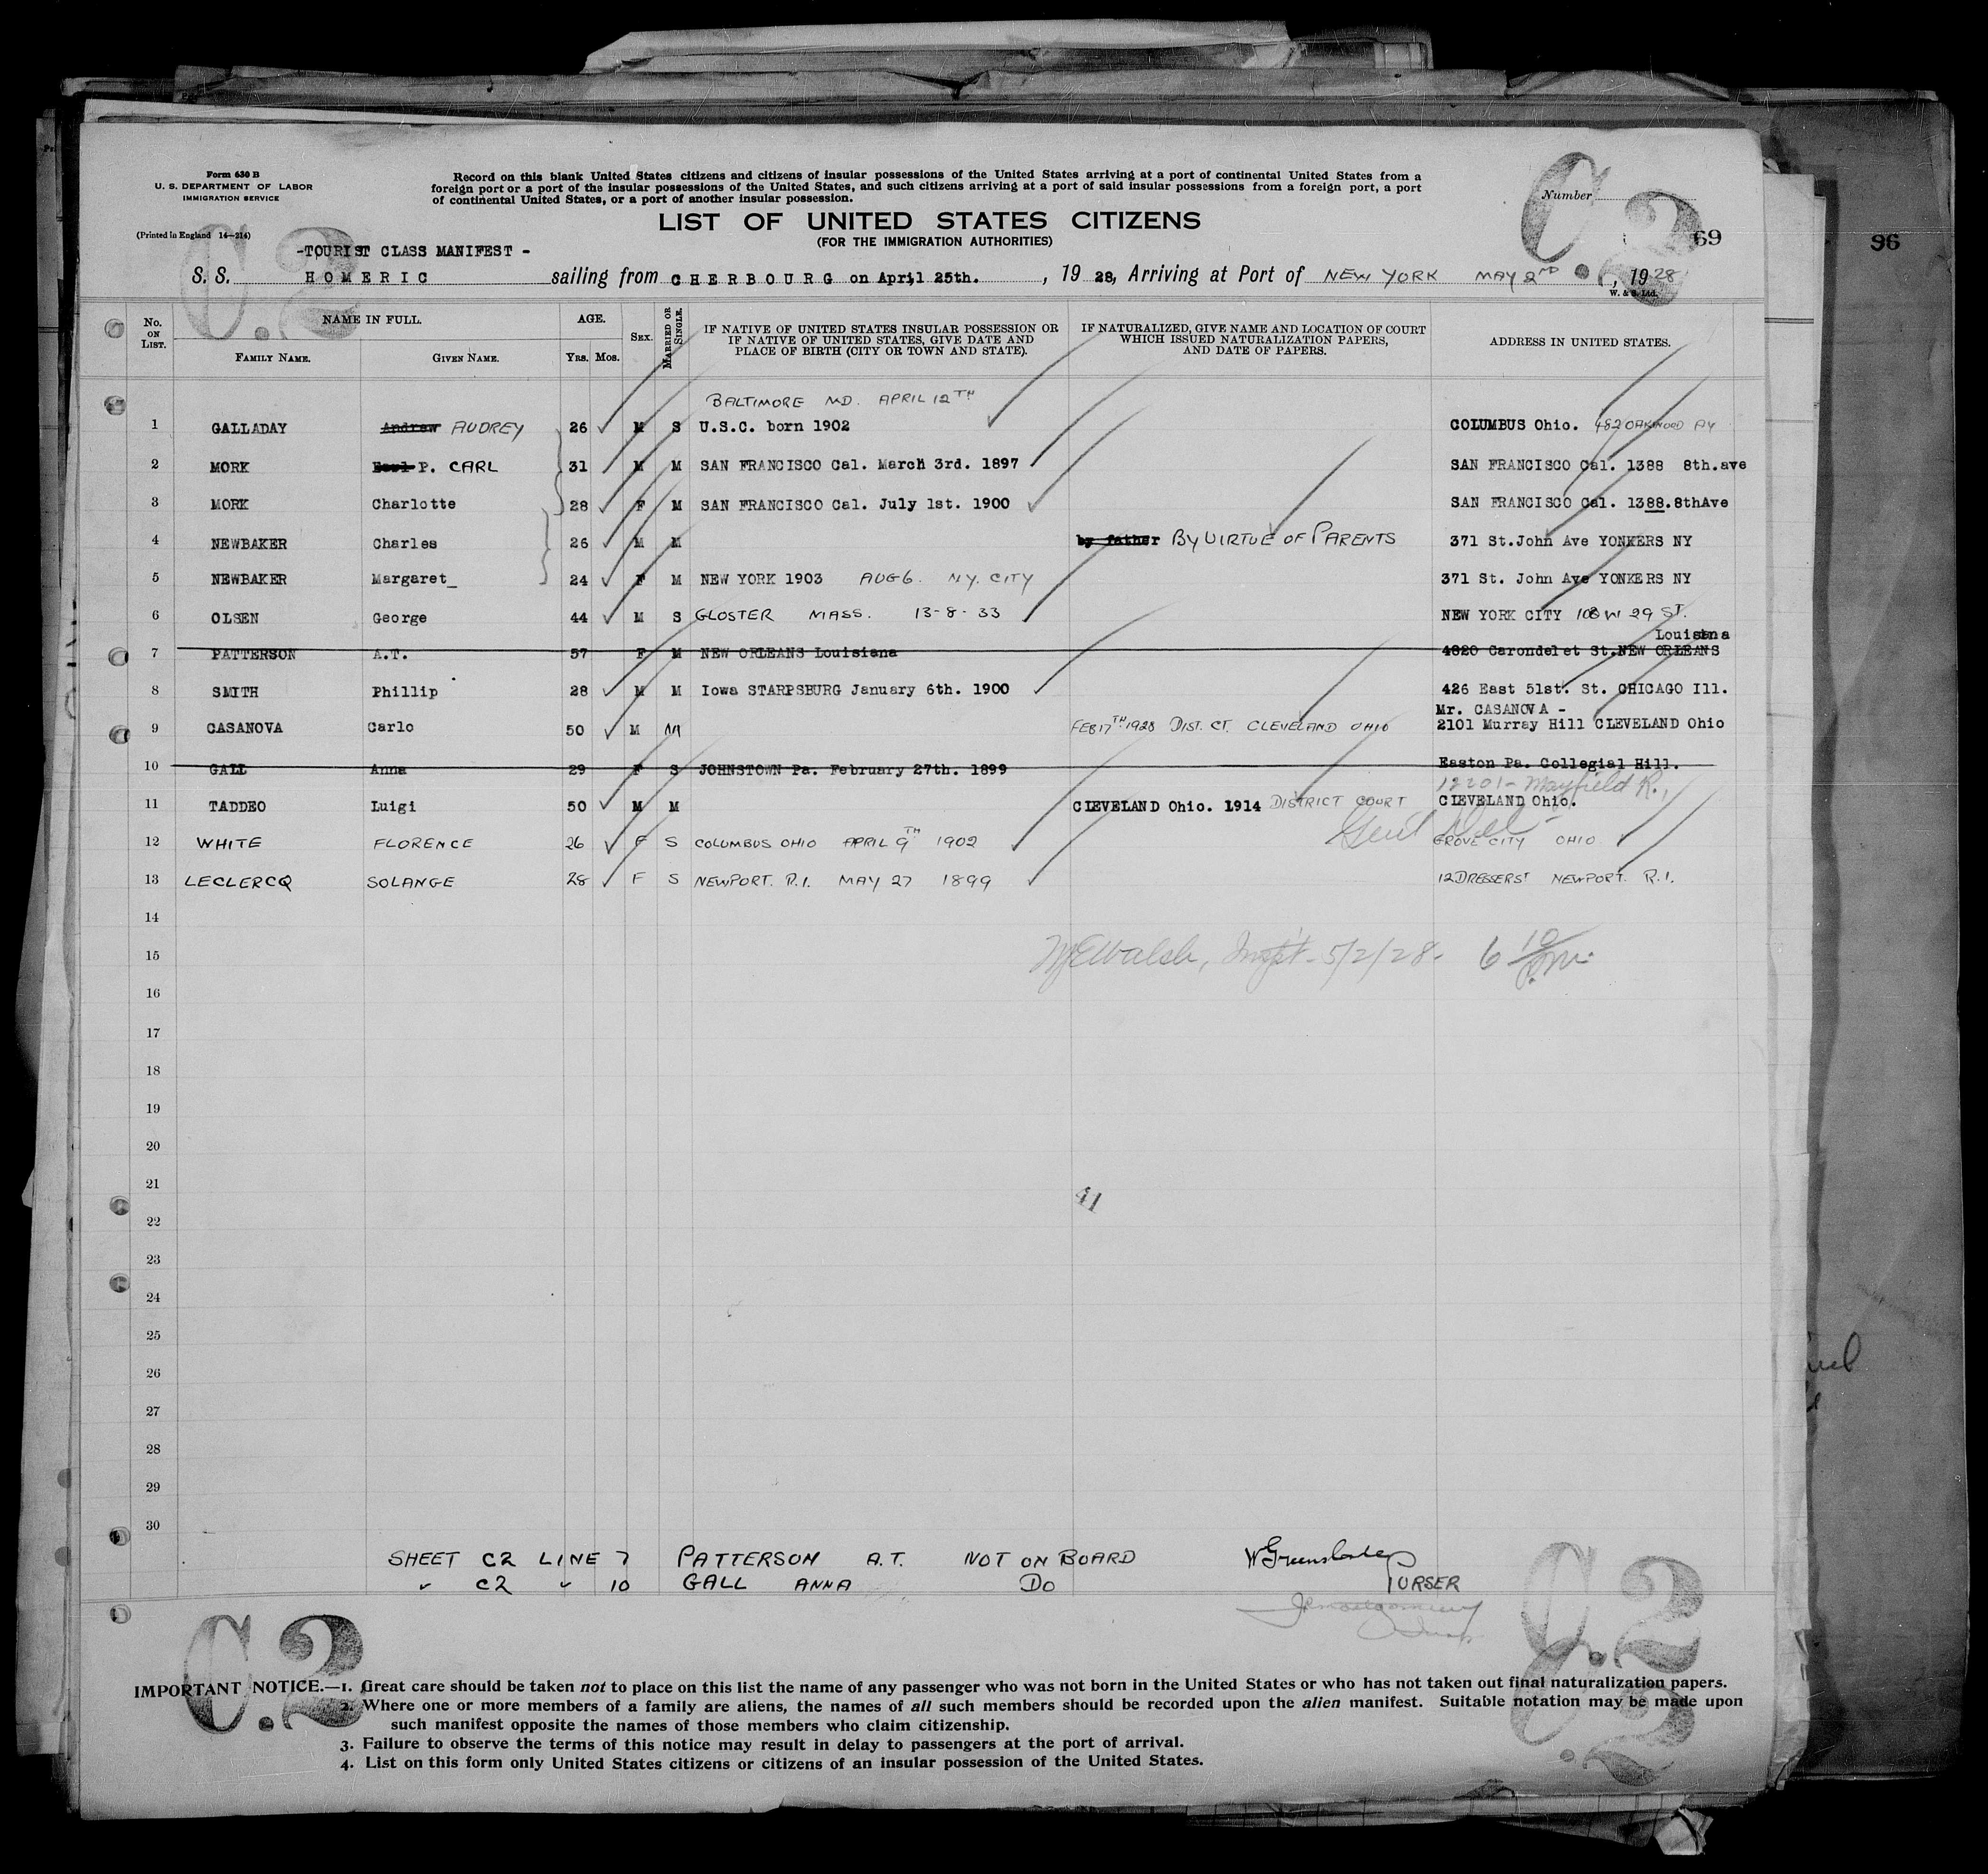 Form 630 B
U. S. DEPARTMENT OF LABOR
IMMIGRATION SERVICE
(Printed in England 14—214)
Record on this blank United States citizens and citizens of insular possessions of the United States arriving at a port of continental United States from a
foreign port or a port of the insular possessions of the United States, and such citizens arriving at a port of said insular possessions from a foreign port, a port
of continental United States, or a port of another insular possession.
LIST OF UNITED STATES CITIZENS
(FOR THE IMMIGRATION AUTHORITIES)
Number
C.2
C.2
69
96
-TOURIST CLASS MANIFEST -
S. S. HOMERIC sailing from CHERBOURG on April 25th. , 19 28, Arriving at Port of NEW YORK MAY 2ND , 19 28
W. & S. Ltd.
No. ON LIST. NAME IN FULL. AGE. SEX. MARRIED OR SINGLE. IF NATIVE OF UNITED STATES INSULAR POSSESSION OR IF NATIVE OF UNITED STATES, GIVE DATE AND PLACE OF BIRTH (CITY OR TOWN AND STATE). IF NATURALIZED, GIVE NAME AND LOCATION OF COURT WHICH ISSUED NATURALIZATION PAPERS, AND DATE OF PAPERS. ADDRESS IN UNITED STATES.
FAMILY NAME. GIVEN NAME. YRS. MOS.
BALTIMORE MD. APRIL 12TH
1 GALLADAY Andrew AUDREY 26 M S U.S.C. born 1902 COLUMBUS Ohio. 482 OAKWOOD AV
2 MORK P. CARL 31 M M SAN FRANCISCO Cal. March 3rd. 1897 SAN FRANCISCO Cal. 1388 8th.ave
3 MORK Charlotte 28 F M SAN FRANCISCO Cal. July 1st. 1900 SAN FRANCISCO Cal. 1388.8thAve
4 NEWBAKER Charles 26 M M by father BY VIRTUE OF PARENTS 371 St.John Ave YONKERS NY
5 NEWBAKER Margaret_ 24 F M NEW YORK 1903 AUG 6. N.Y. CITY 371 St. John Ave YONKERS NY
6 OLSEN George 44 M S GLOSTER MASS. 13-8-33 NEW YORK CITY 108 W 29 ST.
Louisiana
7 PATTERSON A.T. 57 F M NEW ORLEANS Louisiana 4820 Carondelet St.NEW ORLEANS
8 SMITH Phillip 28 M M Iowa STARPSBURG January 6th. 1900 426 East 51st. St. CHICAGO Ill.
Mr. CASANOVA -
9 CASANOVA Carlo 50 M M FEB 17TH 1928 DIST. CT. CLEVELAND OHIO 2101 Murray Hill CLEVELAND Ohio
10 GALL Anna 29 F S JOHNSTOWN Pa. February 27th. 1899 Easton Pa. Collegial Hill.
12201 - Mayfield R.,
11 TADDEO Luigi 50 M M CLEVELAND Ohio. 1914 DISTRICT COURT CLEVELAND Ohio.
12 WHITE FLORENCE 26 F S COLUMBUS OHIO APRIL 9TH 1902 GROVE CITY OHIO
13 LECLERCQ SOLANGE 28 F S NEWPORT. R.I. MAY 27 1899 12 DRESSER ST NEWPORT. R.I.
14
15 Walsh, Insp't - 5/2/28. 6 10/pm.
16
17
18
19
20
21
22
23
24
25
26
27
28
29
30
SHEET C2 LINE 7 PATTERSON A.T. NOT ON BOARD
" C2 " 10 GALL ANNA DO
PURSER
C.2
C.2
C.2
IMPORTANT NOTICE.—1. Great care should be taken not to place on this list the name of any passenger who was not born in the United States or who has not taken out final naturalization papers.
2. Where one or more members of a family are aliens, the names of all such members should be recorded upon the alien manifest. Suitable notation may be made upon
such manifest opposite the names of those members who claim citizenship.
3. Failure to observe the terms of this notice may result in delay to passengers at the port of arrival.
4. List on this form only United States citizens or citizens of an insular possession of the United States.